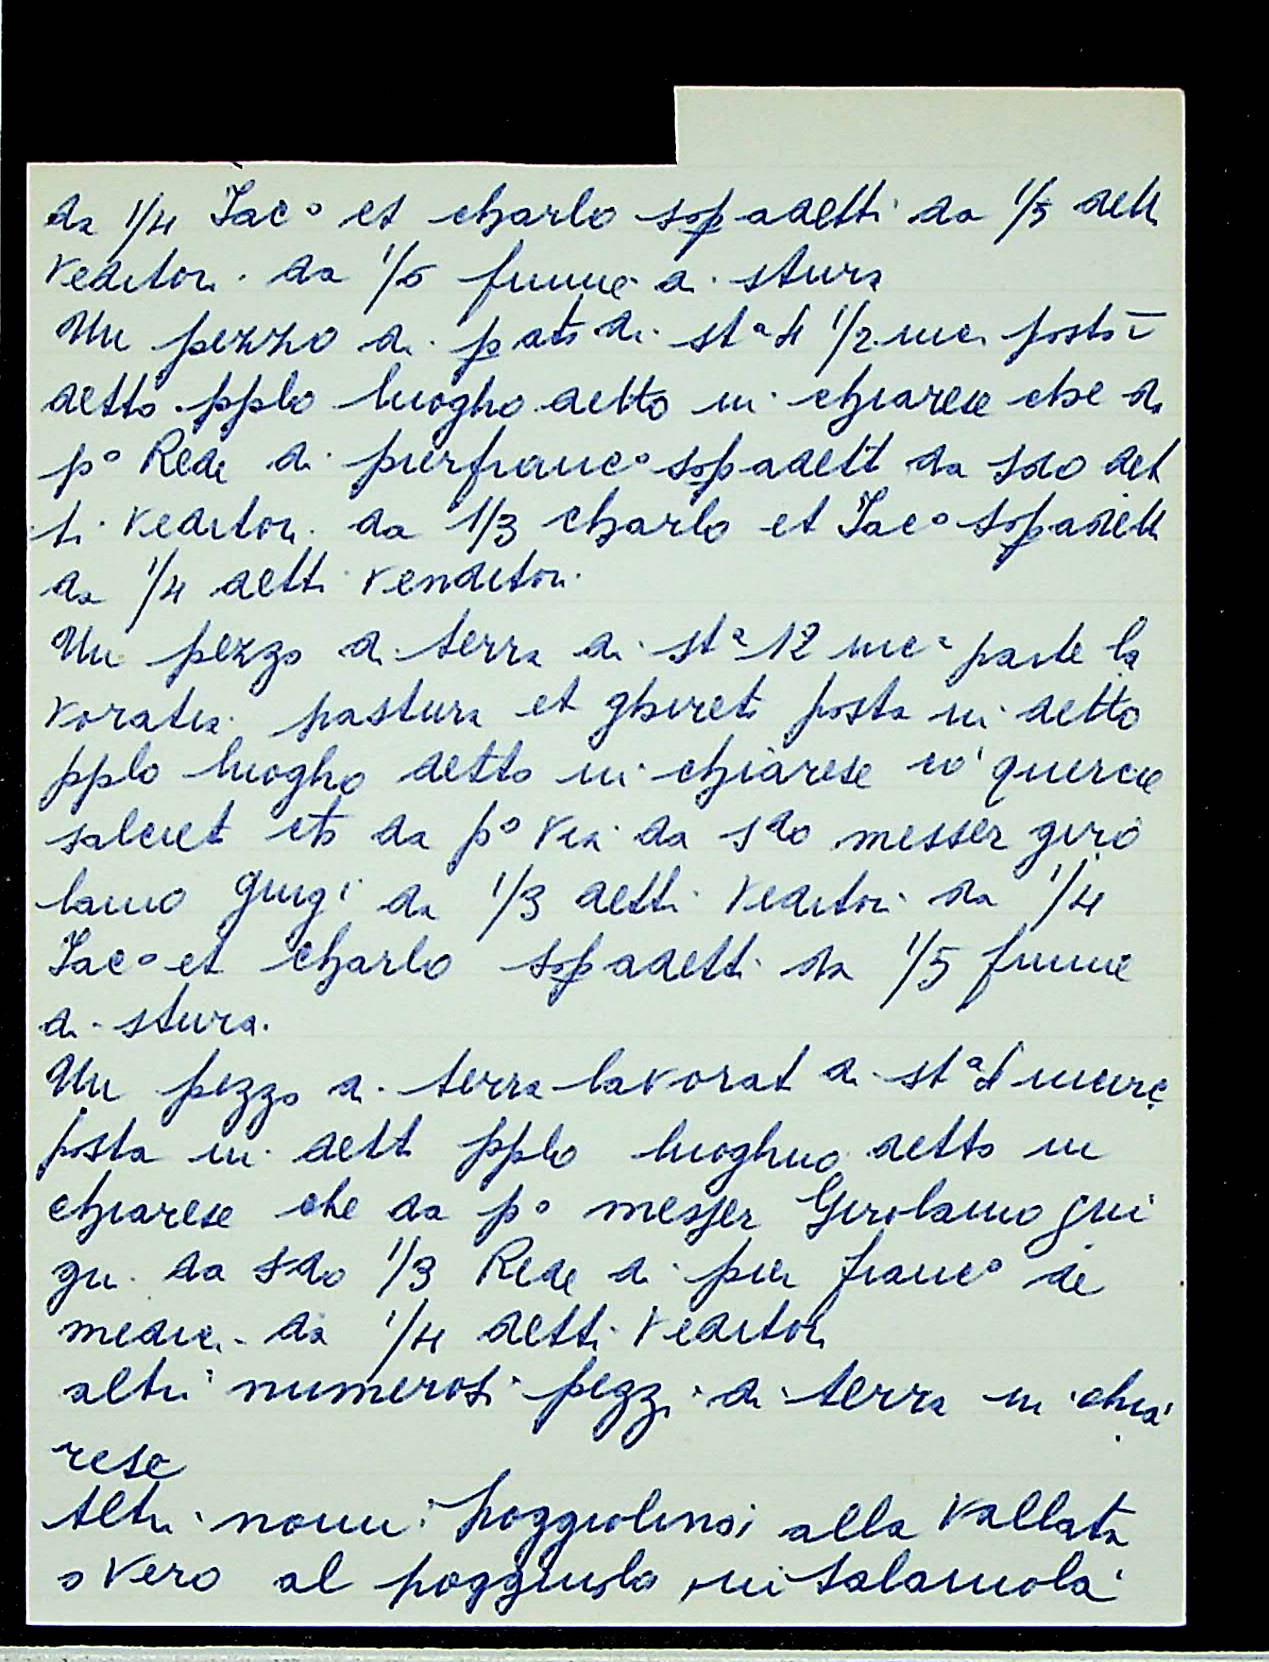 da 1/4 Jac° et charlo sopadetti da 1/5 dett
veditori da 1/6 fiume di stura
Un pezzo di pato di sta 4 1/2 posto ī
detto pplo luogho detto in chiarese che da
p° Rede di pierfranc° sopadett da sdo det
ti veditori da 1/3 charlo et Jac° sopadett
da 1/4 detti venditori
Un pezzo di terra di sta 12 parte la
voratia pastura et ghireti posta in detto
pplo luogho detto in chiarese co quercie
salciet da p° via da sdo messer giro
lamo guigi da 1/3 detti veditori da 1/4
Jac° et charlo sopadetti da 1/5 fiume
di stura.
Un pezzo di terra lavorat di sta
posta in dett pplo luoghuo detto in
chiarese che da p° messer Girolamo gui
gii da sdo 1/3 Rede di pier franc° de
medici da 1/4 detti veditori
altri numerosi pezzi di terra in chia
rese
Altri nomi: poggiolinoi alla Vallata
o vero al poggiuolo in Salamola